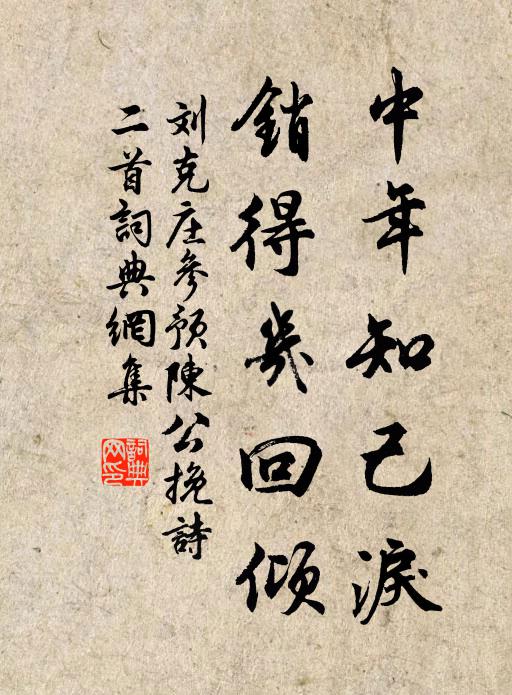 中年知己淚
銷得幾回傾
刘克庄參預陳公挽詩
二首詞典網集
詞典网印